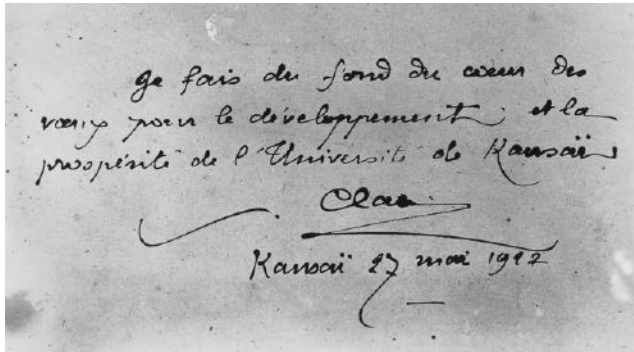 Je fais du fond du cœur des
vœux pour le développement et la
prospérité de l'Université de Kansaï
Kansaï 27 mai 1912